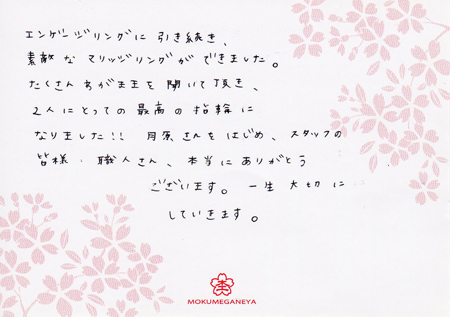 エンゲージリングに引き続き、
素敵なマリッジリングができました。
たくさんわがままを聞いて頂き、
2人にとっての最高の指輪に
なりました!! 月原さんをはじめ、スタッフの
皆様・職人さん、本当にありがとう
ございます。一生大切に
していきます。
杢
MOKUMEGANEYA